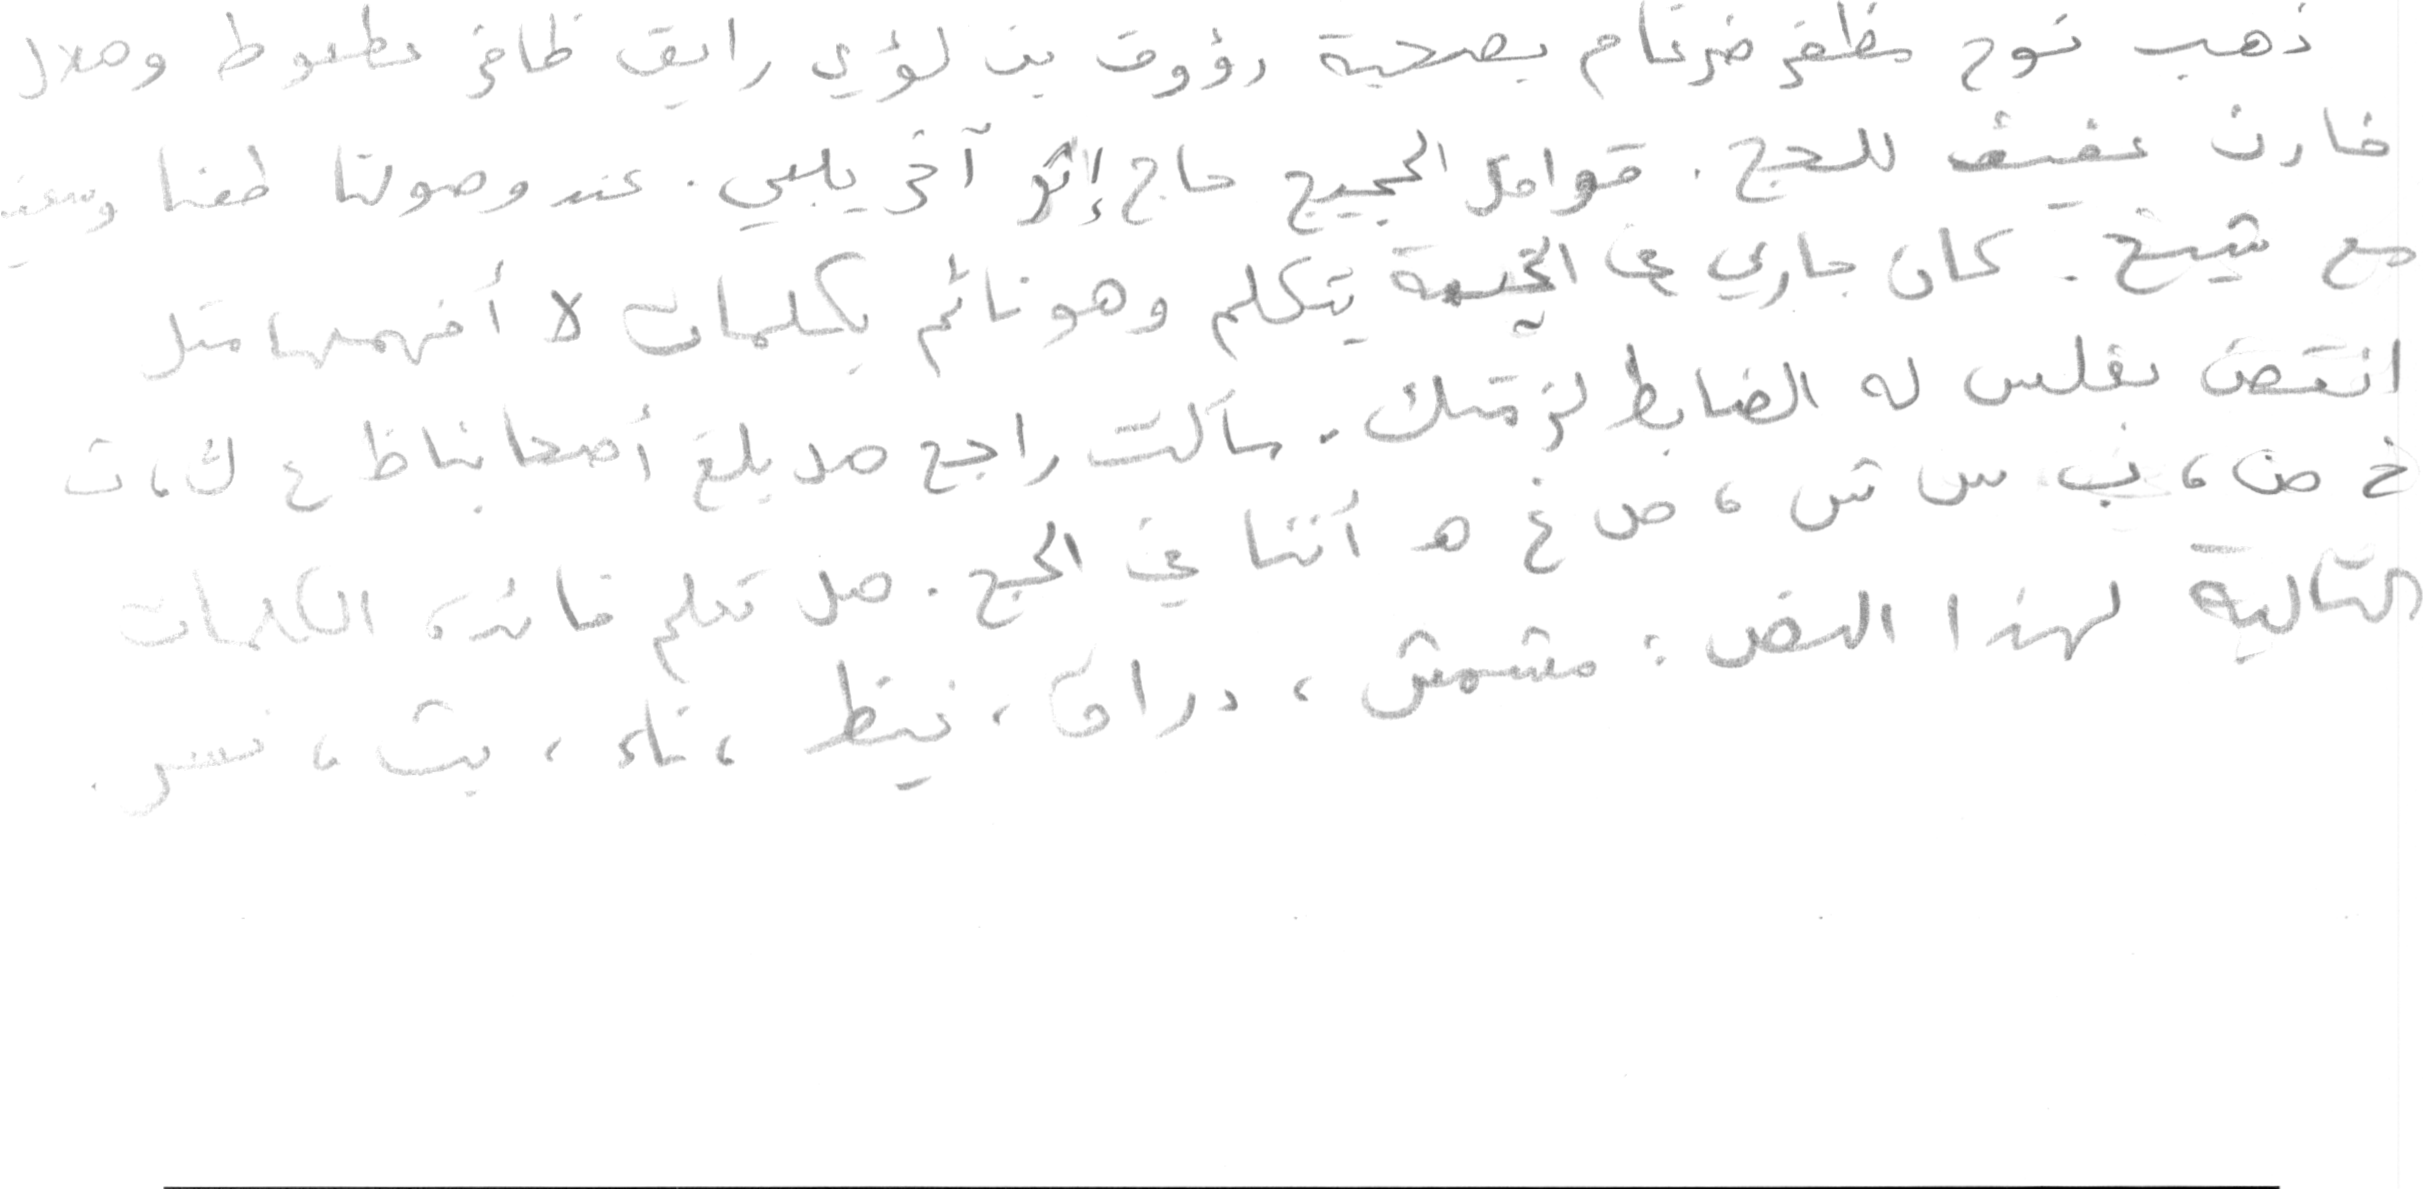 ذهب نوح مظفر ضرغام بصحبة رؤوف بن لؤي رايق ظافر عطعوط وهلال
خارن عفيف للحج . قوافل الحجيج حاج إثر آخر يلبي . عند وصولنا طفنا وسعينا
مع شيخ . كان جاري في الخيمة يتكلم وهو نائم بكلمات لا أفهمها مثل
انتعض بفلس له الضابط لزمتك . سألت راجح هل يلغ أصحابنا ظ ع ك ، ث
خ ض ، ب س ش ، ص غ ه أثنا في الحج . هل تعلم فائدة الكلمات
التالية لهذا النص : مشمش ، دراق ، نيظ ، ناء ، بث ، نسر .